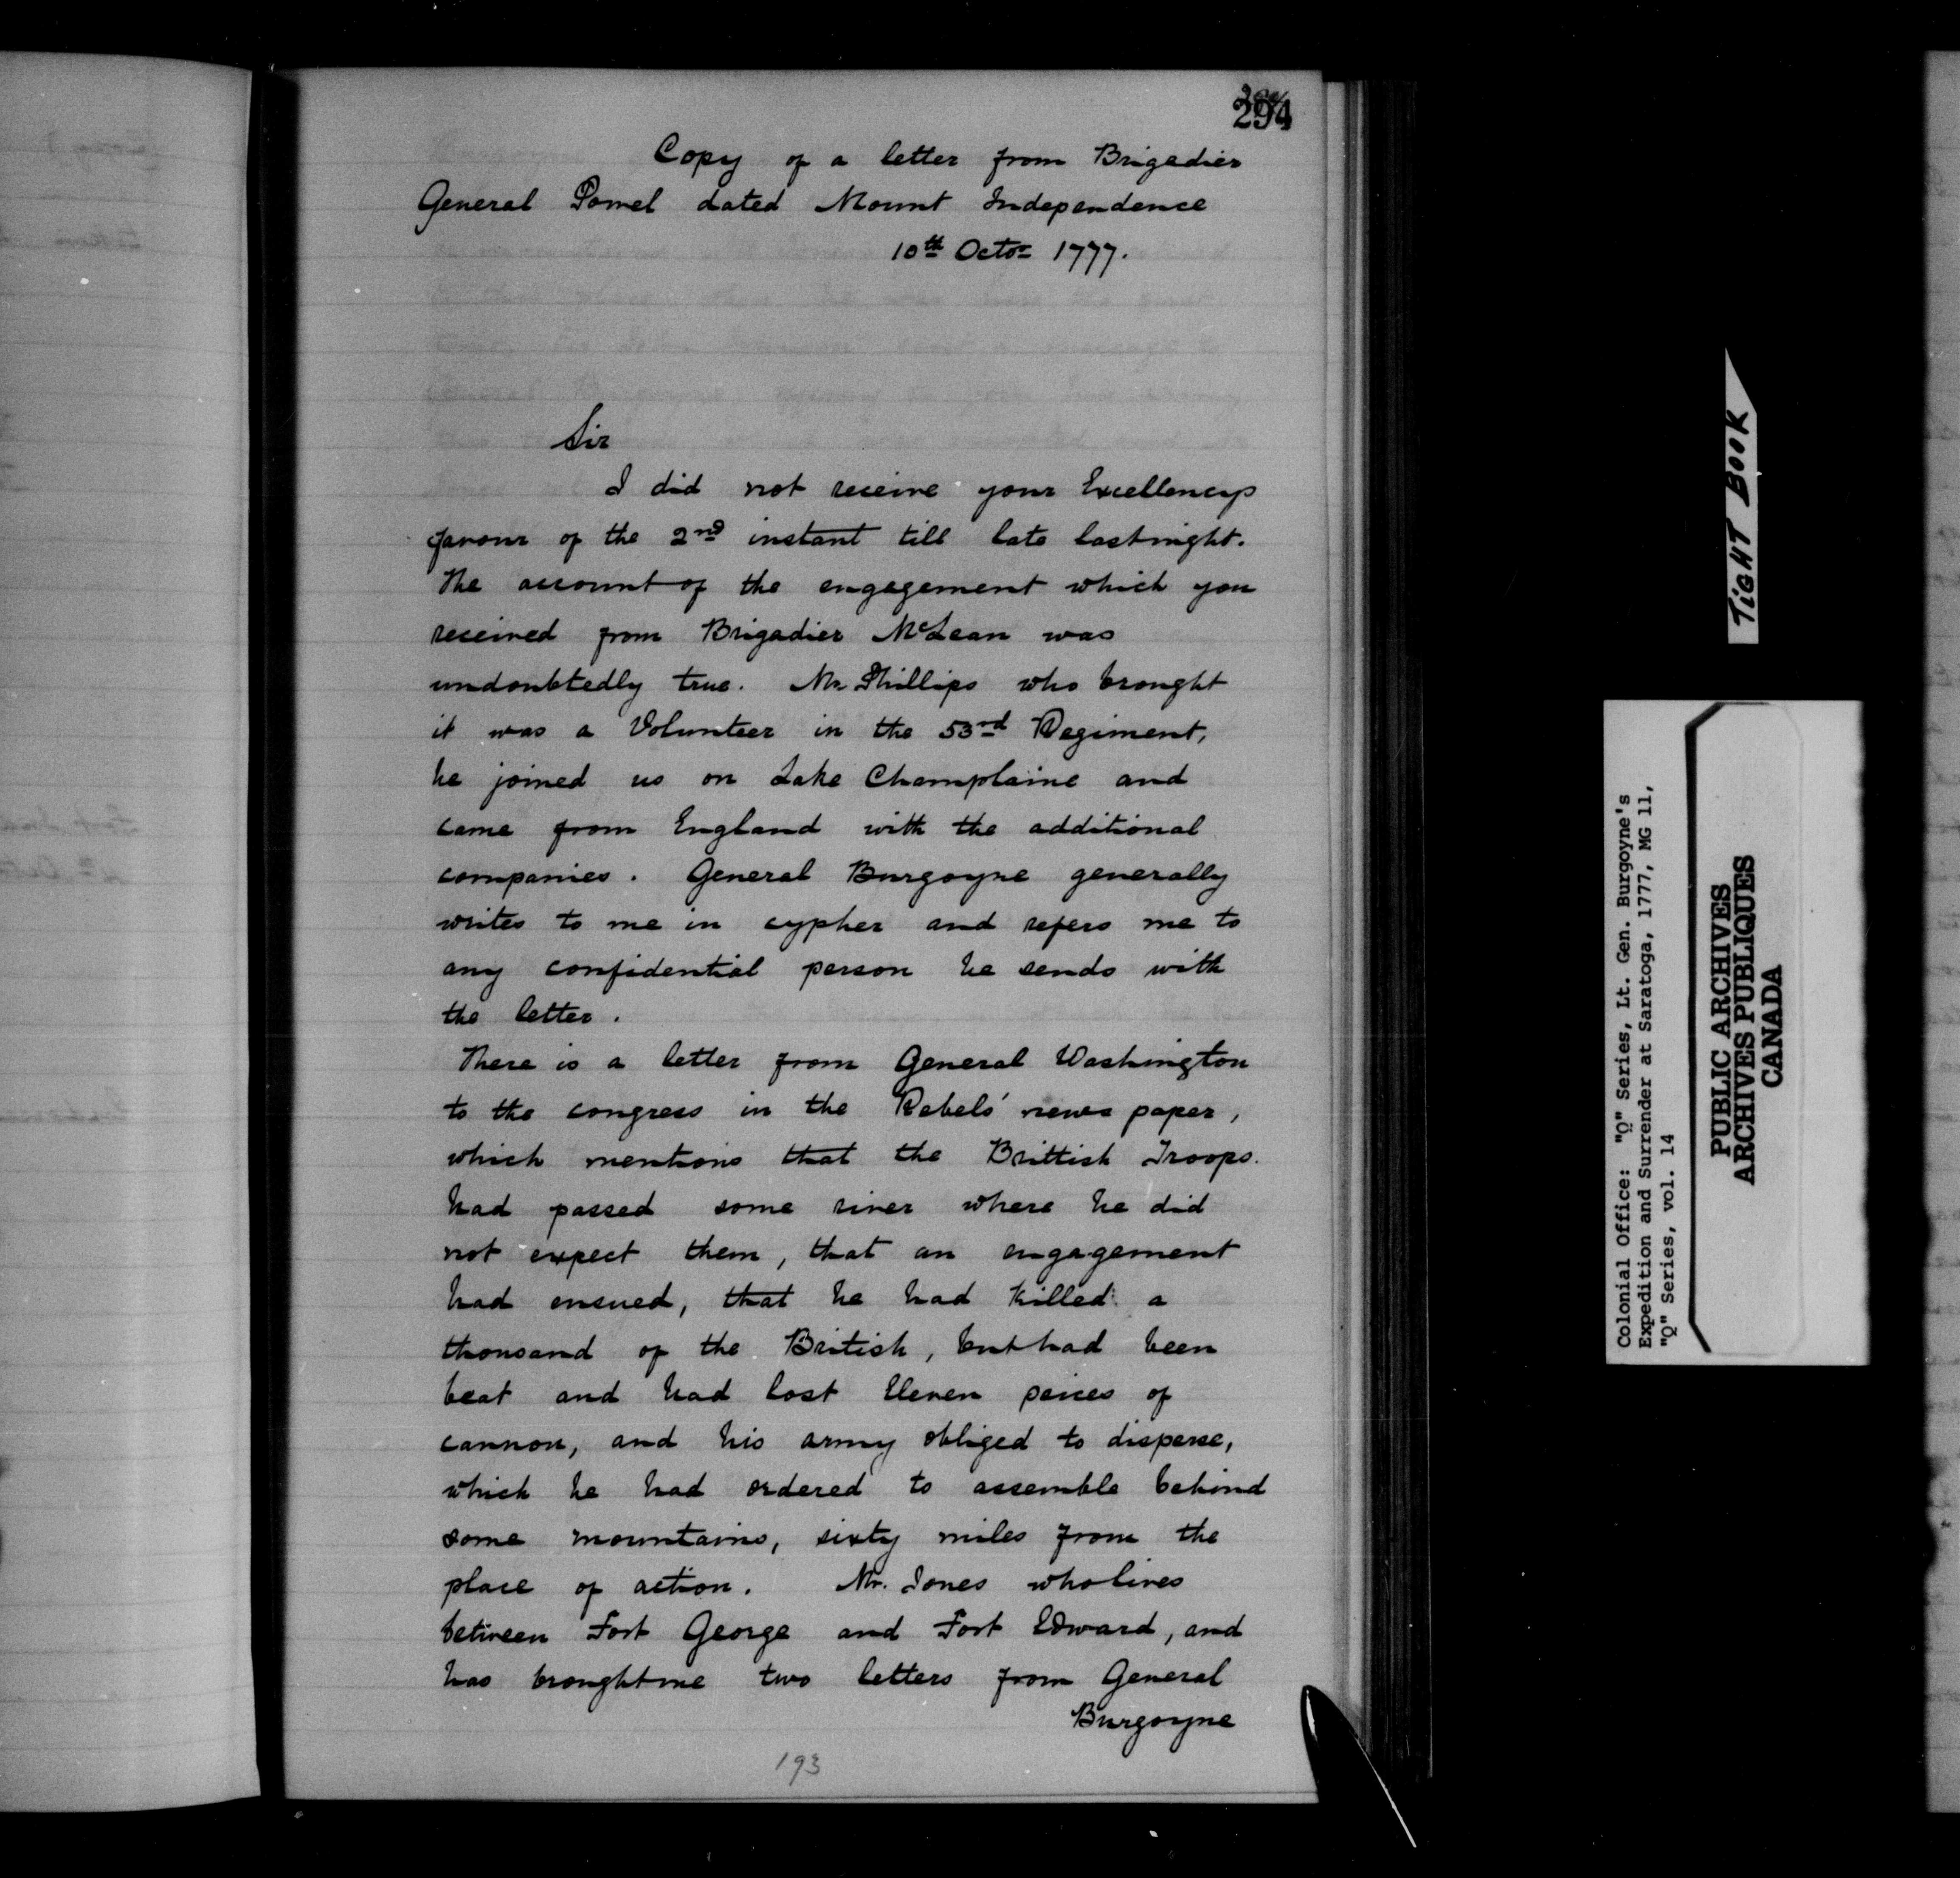 294
Copy of a letter from Brigadier
General Powel dated Mount Independence
10th Octor 1777.
Sir
I did not receive your Excellencys
favour of the 2nd instant till late last night.
The account of the engagement which you
received from Brigadier McLean was
undoubtedly true. Mr Phillips who brought
it was a Volunteer in the 53rd Regiment,
he joined us on Lake Champlaine and
came from England with the additional
companies. General Burgoyne generally
writes to me in cypher and refers me to
any confidential person he sends with
the letter.
There is a letter from General Washington
to the congress in the Rebels' news paper,
which mentions that the Brittish Troops.
had passed some river where he did
not expect them, that an engagement
had ensued, that he had killed a
thousand of the British, but had been
beat and had lost Eleven peices of
cannon, and his army obliged to disperse,
which he had ordered to assemble behind
some mountains, sixty miles from the
place of action. Mr. Jones who lives
between Fort George and Fort Edward, and
has brought me two letters from General
Burgoyne
193
TIGHT BOOK
Colonial Office: "Q" Series, Lt. Gen. Burgoyne's
Expedition and Surrender at Saratoga, 1777, MG 11,
"Q" Series, vol. 14
PUBLIC ARCHIVES
ARCHIVES PUBLIQUES
CANADA